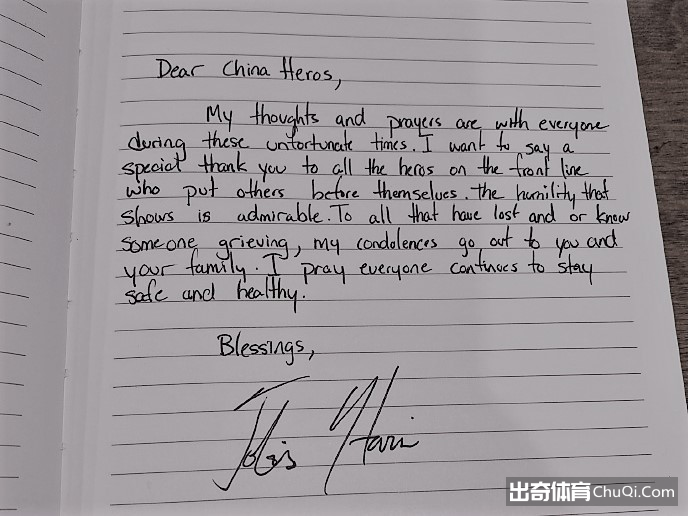 Dear China Heros,
My thoughts and prayers are with everyone
during these unfortunate times. I want to say a
special thank you to all the heros on the front line
who put others before themselves. The humility that
shows is admirable. To all that have lost and or know
someone grieving, my condolences go out to you and
your family. I pray everyone continues to stay
safe and healthy.
Blessings,
Tobias Harris
出奇体育ChuQi.Com